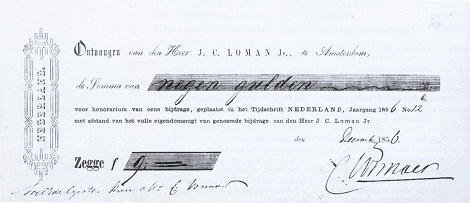 NEDERLAND.
Ontvangen van den Heer J. C. LOMAN Jr., te Amsterdam,
de Somma van negen gulden
voor honorarium van eene bijdrage, geplaatst in het Tijdschrift NEDERLAND, Jaargang 1856 No. 12
met afstand van het volle eigendomsregt van genoemde bijdrage, aan den Heer J. C. Loman Jr.
den Decemb 1856.
Zegge f 9,—
C. Vosmaer
den Mr C Vosmaer